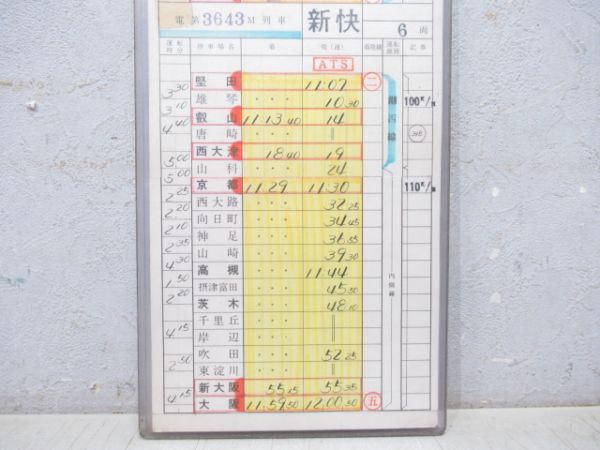 電 第3643M列車 新快 6両
運転時分 停車場名 着 発(通) 着発線 運転線路 記事
ATS
堅田 ・・・ 11:07 二
3 30
雄琴 ・・・ 10 30 100K/H
3 10
叡山 11 13 40 14
4 40
唐崎 ・・・ ‖
西大津 18 40 19
5 00
山科 ・・・ 24
5 00
京都 11:29 11:30 110K/H
2 25
西大路 ・・・ 32 25
2 20
向日町 ・・・ 34 45
2 10
神足 ・・・ 36 55
2 35
山崎 ・・・ 39 30
4 30
高槻 ・・・ 11:44
1 50
摂津富田 ・・・ 45 50
2 20
茨木 ・・・ 48 10
千里丘 ・・・ ‖
4 15
岸辺 ・・・ ‖
吹田 ・・・ 52 25
2 50
東淀川 ・・・ ‖
新大阪 55 15 55 35
4 15
大阪 11:59 50 12:00 50 五
湖西線
内側線